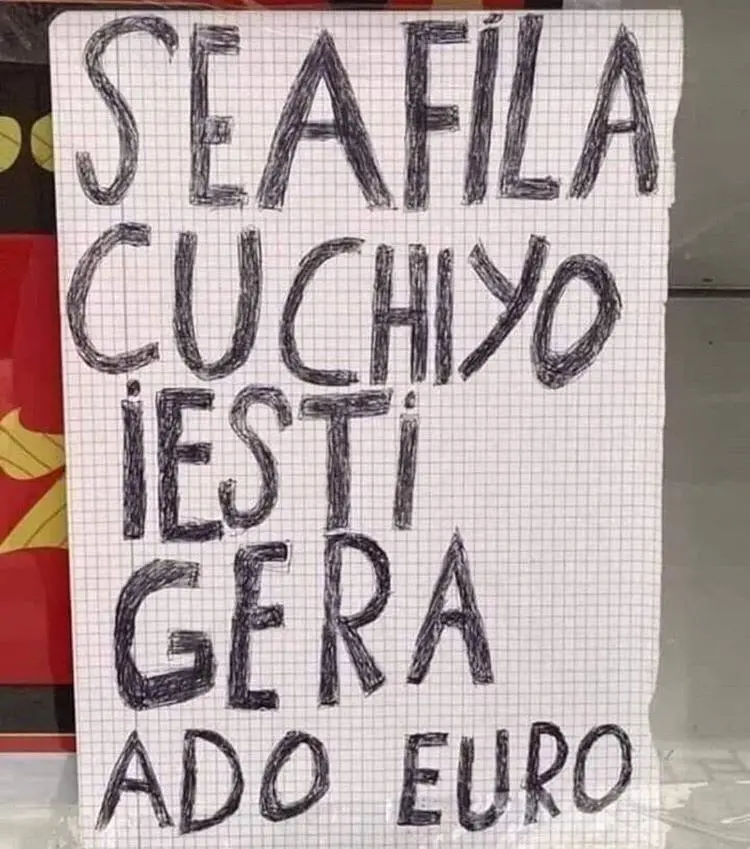 SEAFILA
CUCHIYO
iESTi
GERA
ADO EURO